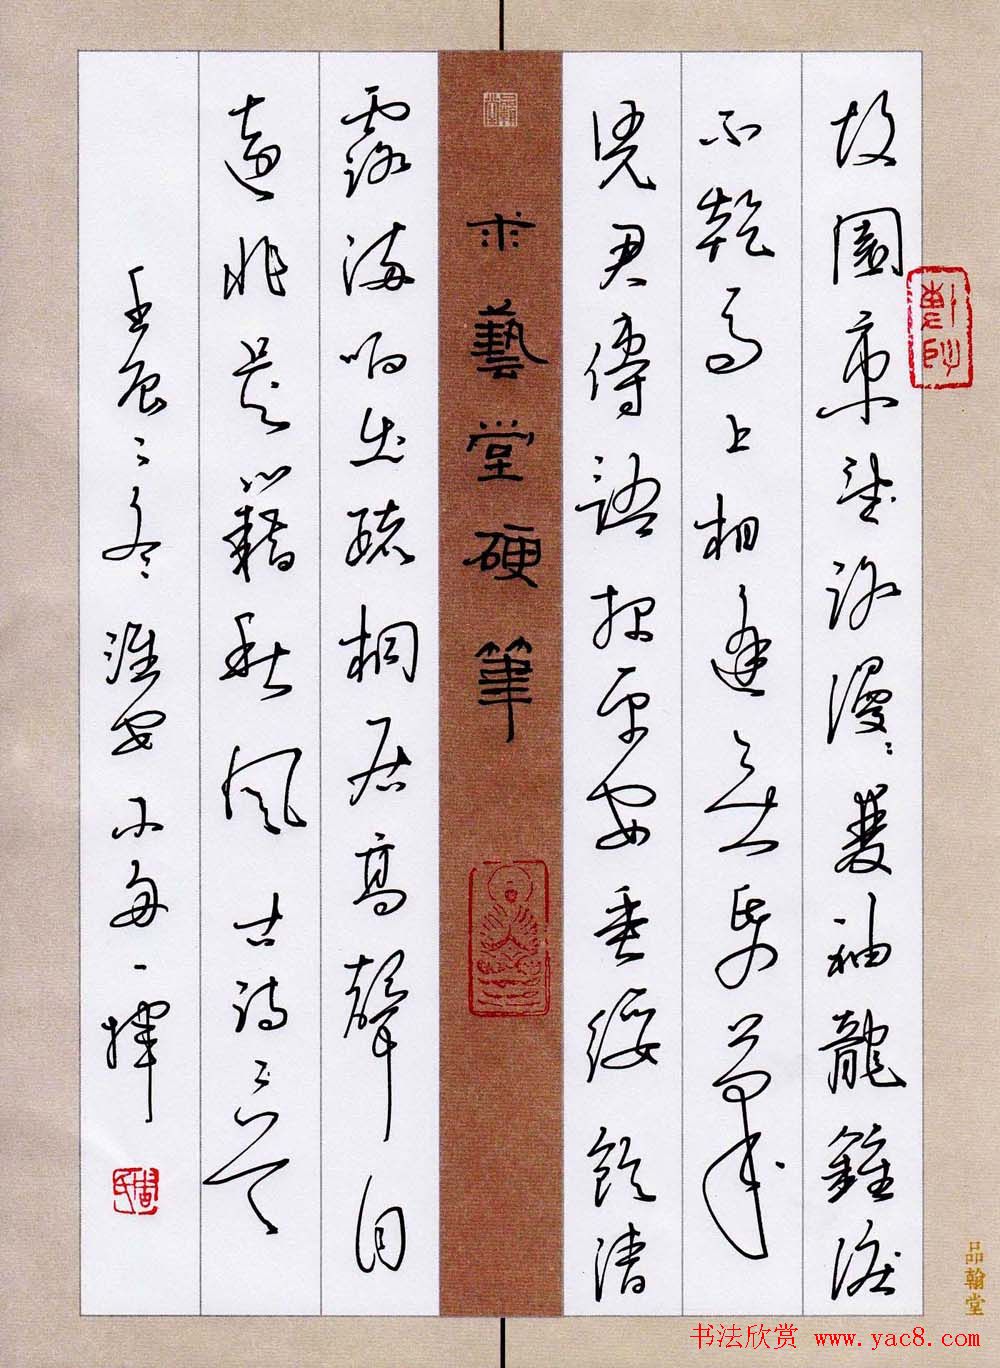 故園東望路漫漫雙袖龍鍾淚
不乾馬上相逢無紙筆
凭君傳語报平安垂緌飲清
求藝堂硬筆
露流响出疏桐居高聲自
遠非是藉秋風 古詩二首
壬辰之冬淮安一揮
品翰堂
书法欣赏 www.yac8.com